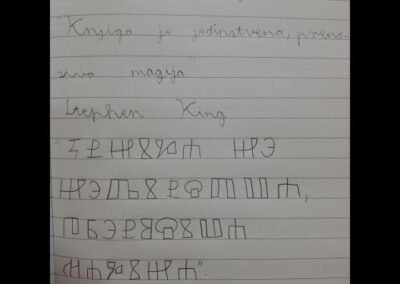 "Knjiga je jedinstvena, preno-
siva magija"
Stephen King
"ⰽⱀⰼⰹⰳⰰ ⰼⰵ
ⱂⱃⰵⱀⱁⱄⰹⰲⰰ
ⰿⰰⰳⰹⰼⰰ".